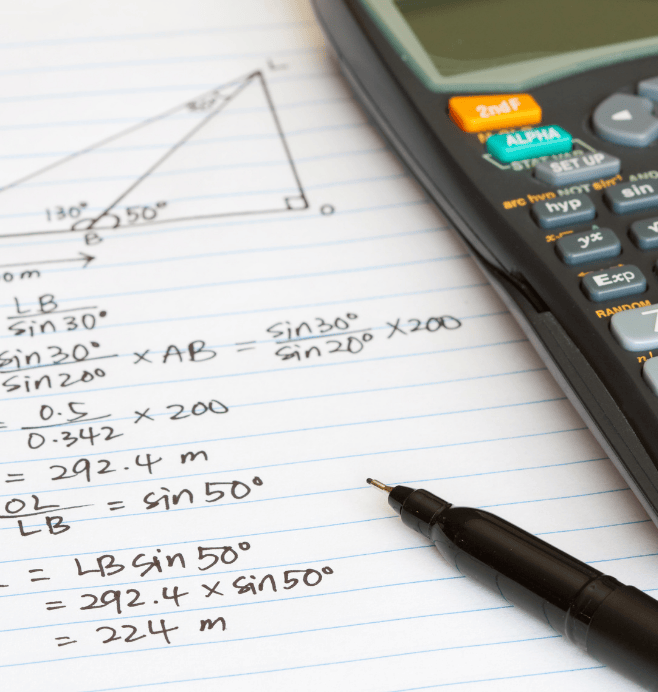 L
130°
50°
O
B
0 m
LB
sin 30°
sin 30°
sin 20°
× AB =
sin 30°
sin 20°
× 200
=
0.5
0.342
× 200
= 292.4 m
OL
LB
= sin 50°
= LB sin 50°
= 292.4 × sin 50°
= 224 m
2ndF
ALPHA
SET UP
arc hyp NOT sin⁻¹ AND
hyp
sin
yx
Exp
RANDOM
7